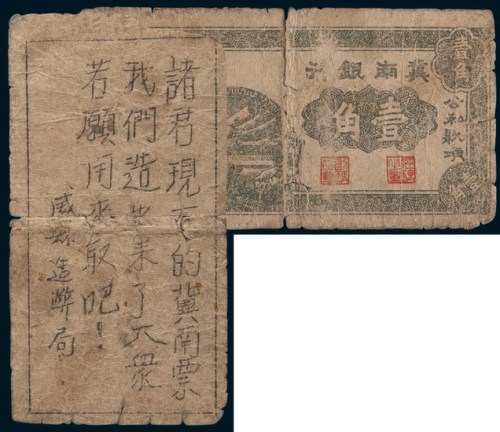 冀南銀行
壹角
壹角
公私款項
諸君現在的冀南票
我們造出来了大衆
若願用来取吧!
威縣造弊局